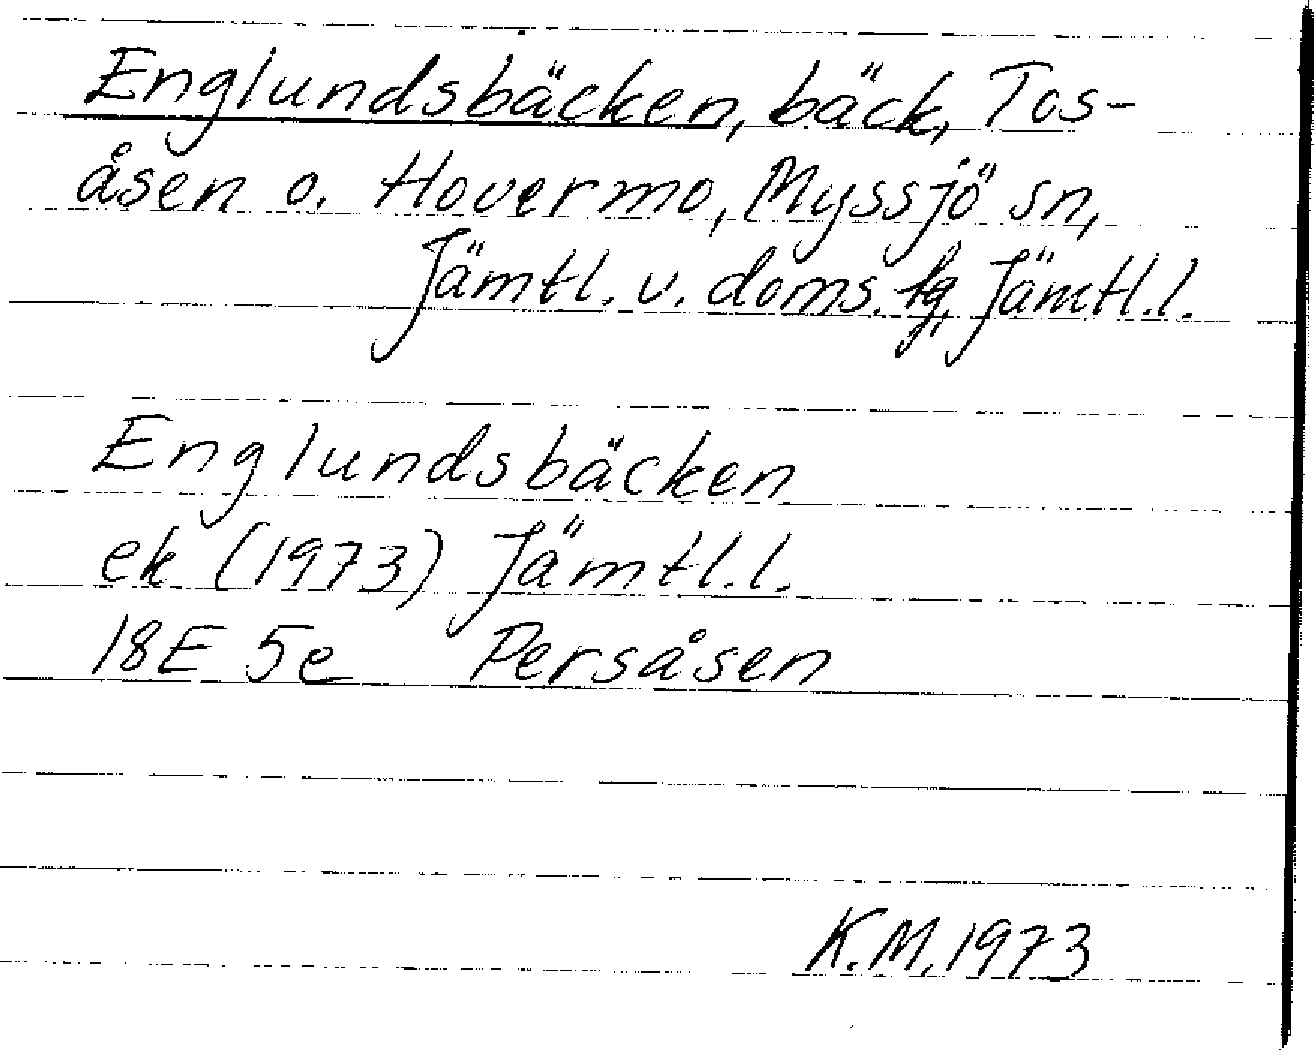 Englundsbäcken, bäck, Tos-
åsen o. Hovermo, Myssjö sn,
Jämtl. v. doms. fg, Jämtl. l.
Englundsbäcken
ek (1973) Jämtl. l.
18E 5e Persåsen
K.M. 1973